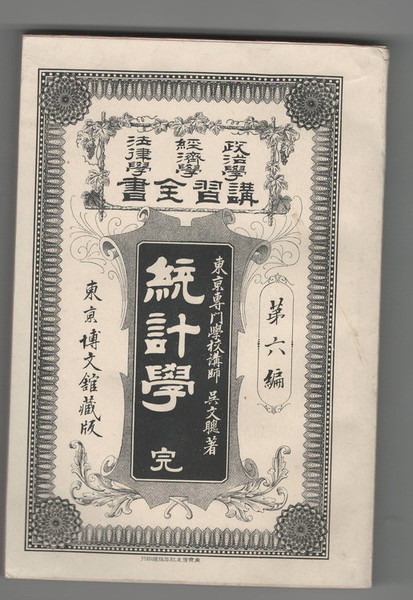 政治學
經濟學
法律學
講習全書
第六編
東京専門學校講師 呉文聰著
統計學 完
東京博文館藏版